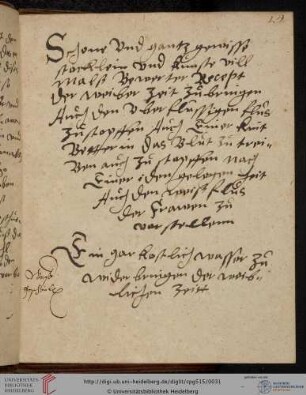 19
Schone Und gantz gewisse
stucklein Und kunste vill
malß bewerter Recept
der weiber Zeit Zubringen
Auch den Uberflussigen fluß
Zu stopffen Auch Einer
in das Blut zu trei-
ben auch Zu stopffen nach
Einer iden gelegen heit
Auch den weiß fluß
der Frawen Zu
vorstellenn
Ein gar kostlich wasser Zu
wider bringen der weib-
lichen Zeitt
UNIVERSITÄTS-
BIBLIOTHEK
HEIDELBERG
http://digi.ub.uni-heidelberg.de/diglit/cpg515/0031
Universitätsbibliothek Heidelberg